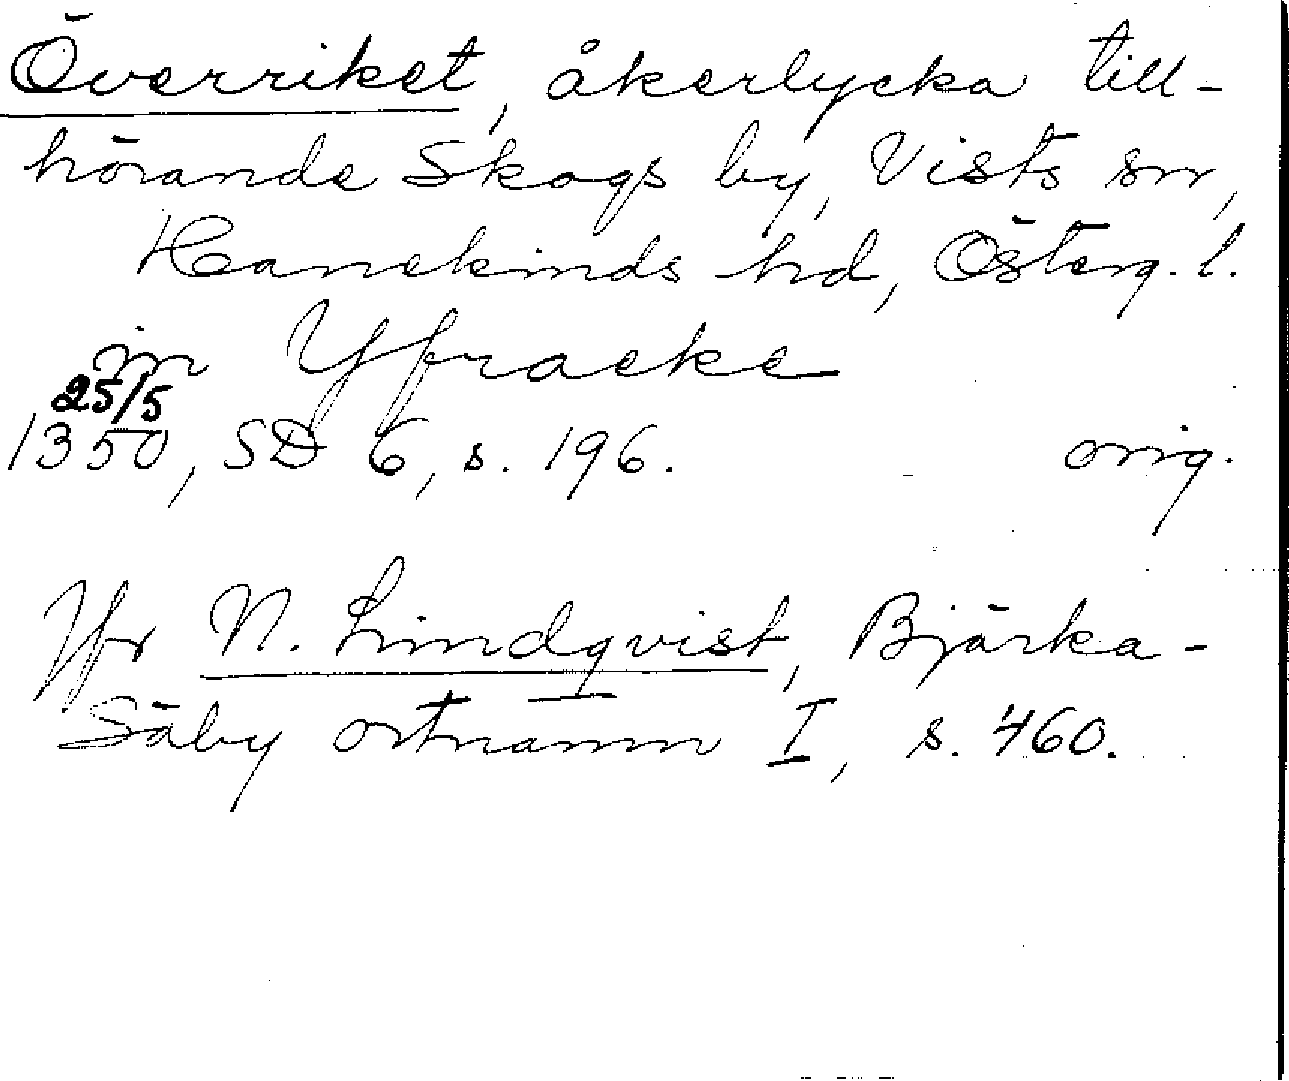 Överriket, åkerlycka till-
hörande Skogs by, Vists sn,
Hanekinds hd, Österg. l.
in Yfraeke
25/5
1350, SD 6, s. 196. orig.
Jfr N. Lindqvist, Bjärka-
Säby ortnamn I, s. 460.